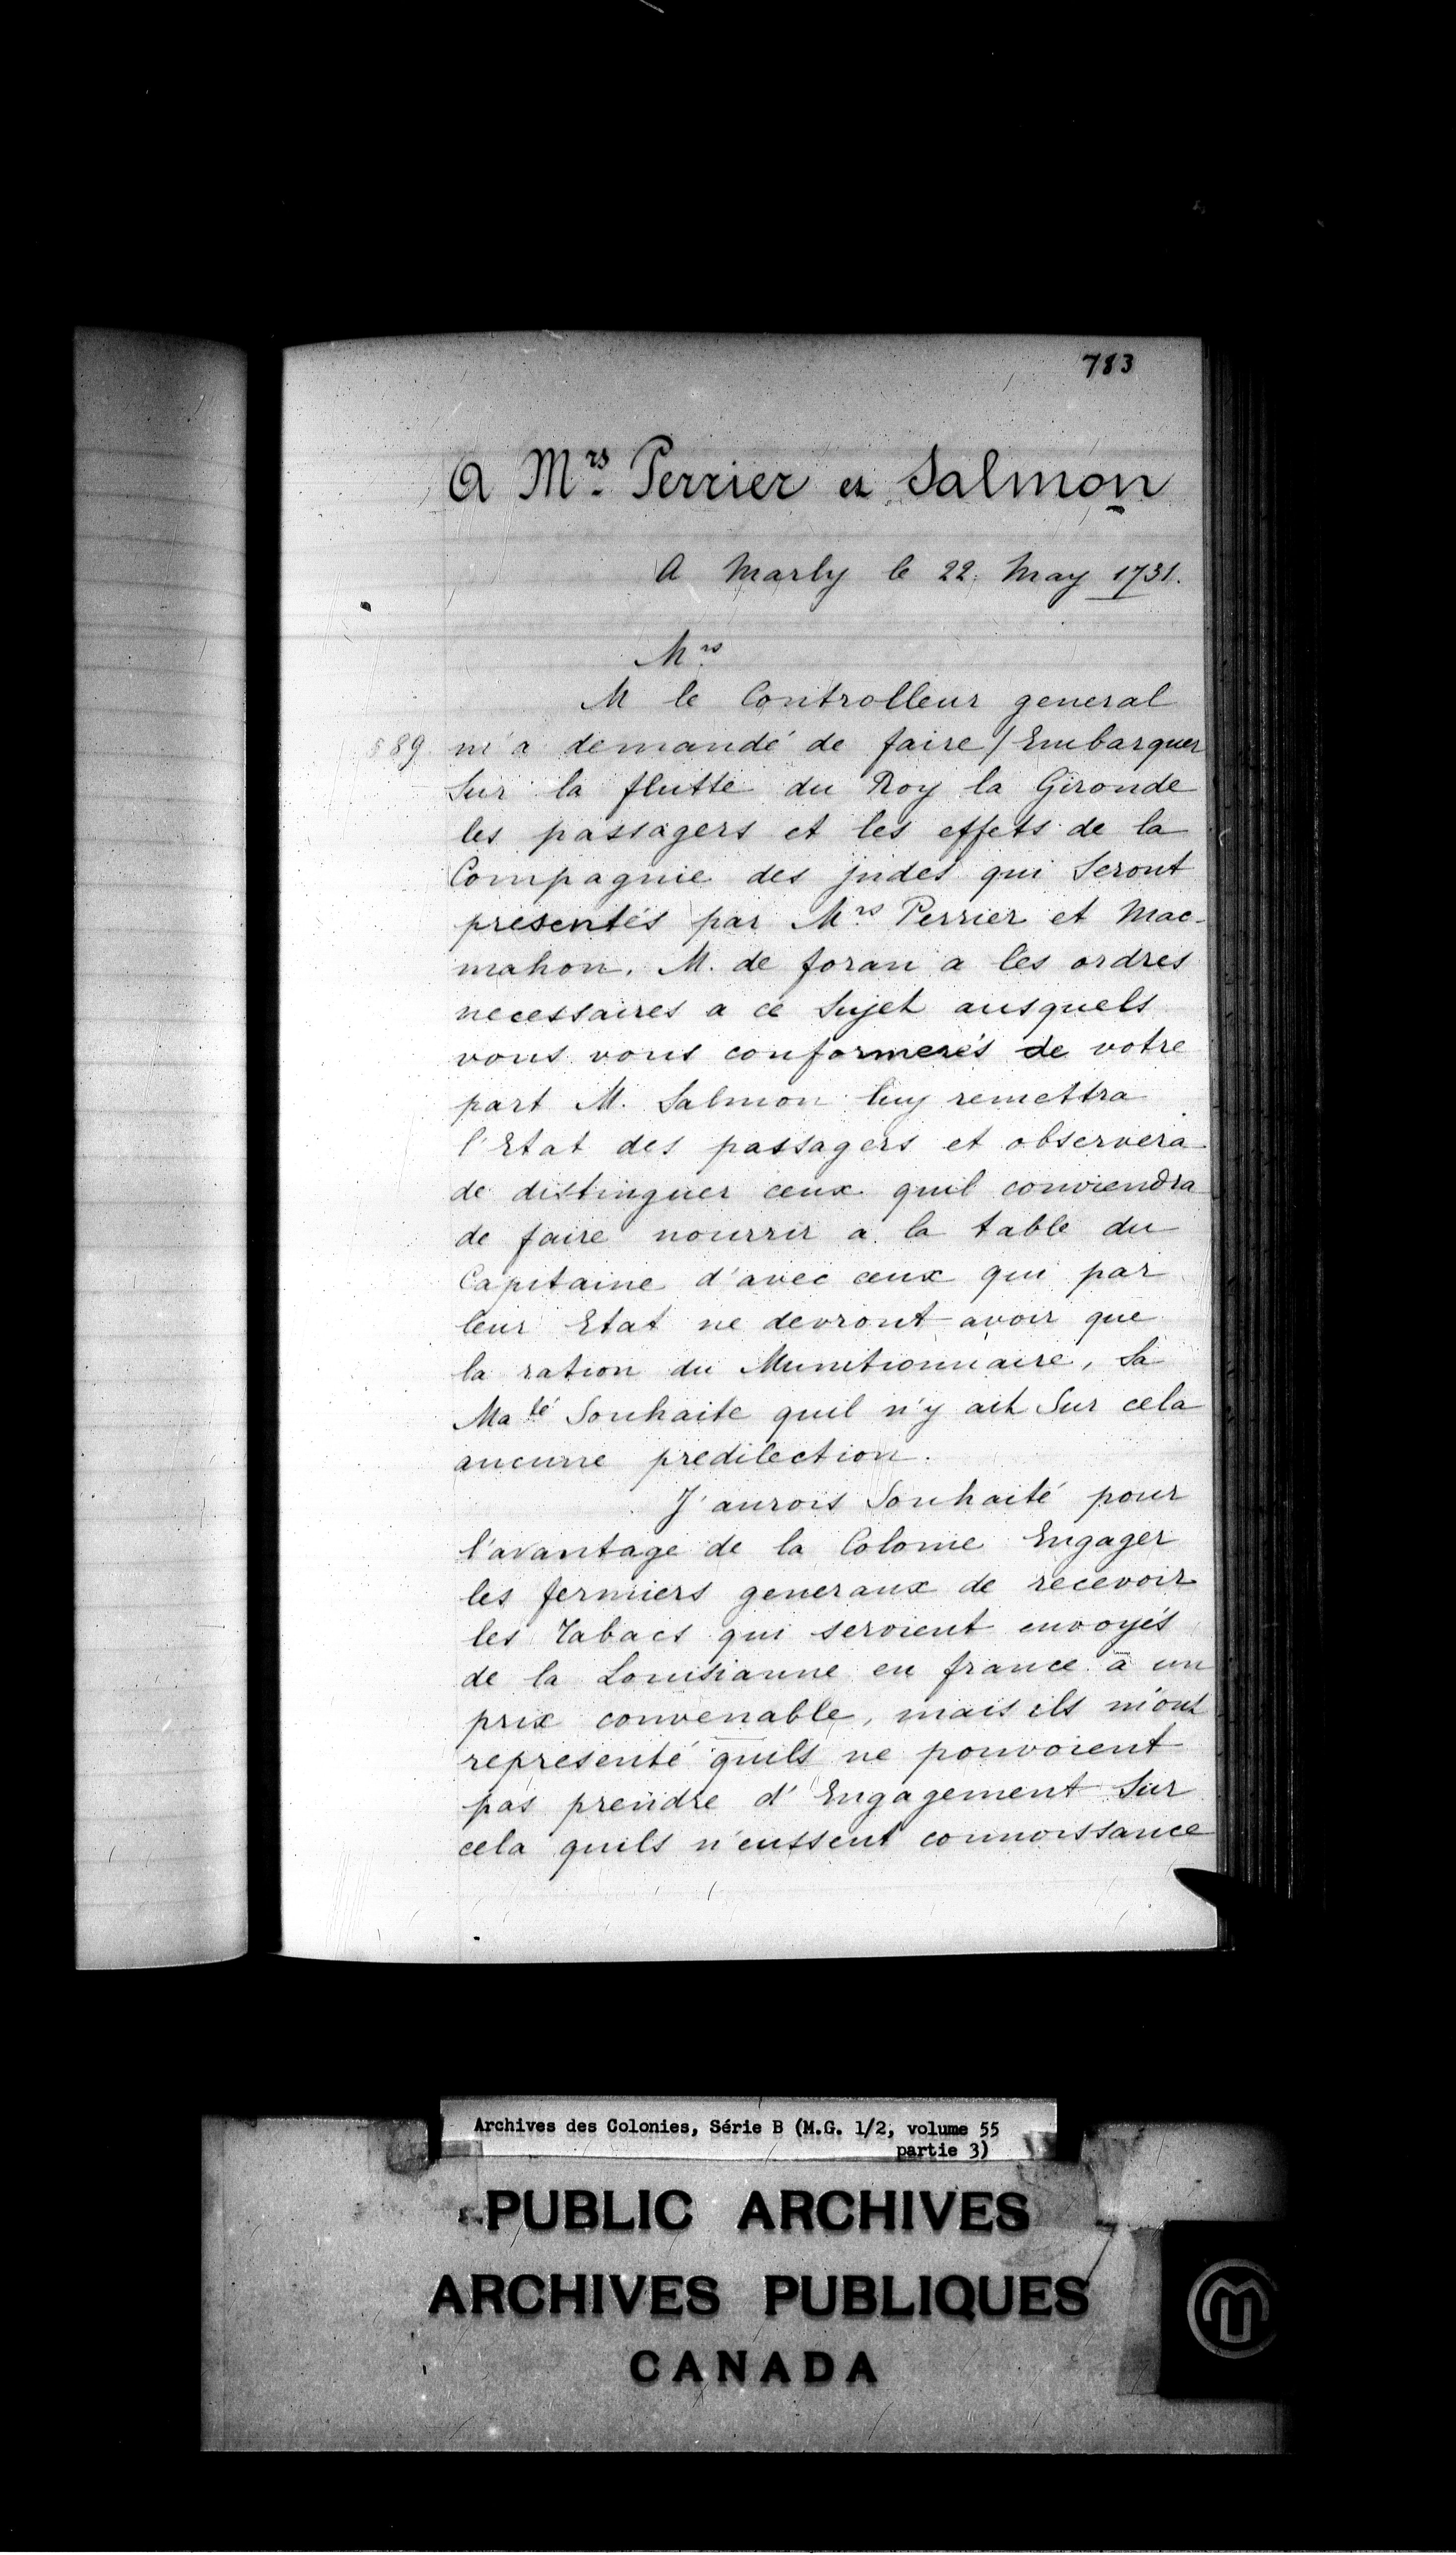 783
A M.rs Perrier et Salmon
A Marly le 22. May 1731.
M.rs
M le Controlleur general
589 m'a demandé de faire / Embarquer
Sur la flutte du Roy la Gironde
les passagers et les effets de la
Compagnie des jndes qui Seront
presentés par M.rs Perrier et Mac-
mahon. M. de foran a les ordres
necessaires a ce Sujet ausquels
vous vous conformerés de votre
part M. Salmon luy remettra
l'Etat des passagers et observera
de distinguer ceux quil conviendra
de faire nourrir a la table du
Capitaine d'avec ceux qui par
leur Etat ne devront avoir que
la ration du Munitionnaire, Sa
Ma.té Souhaite quil n'y ait Sur cela
aucune predilection.
J'aurois Souhaité pour
l'avantage de la Colonie Engager
les fermiers generaux de recevoir
les Tabacs qui seroient envoyés
de la Louisianne en france à un
prix convenable, mais ils m'ont
representé quils ne pouvoient
pas prendre d'Engagement Sur
cela quils n'eussent connoissance
Archives des Colonies, Série B (M.G. 1/2, volume 55
partie 3)
PUBLIC ARCHIVES
ARCHIVES PUBLIQUES
CANADA